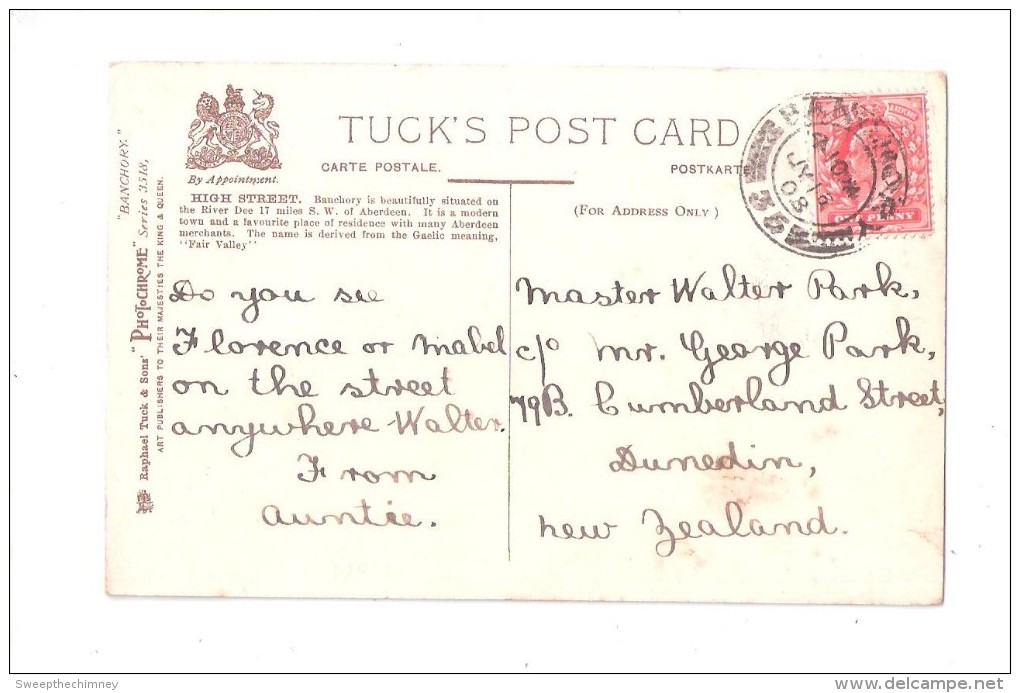 TUCK'S POST CARD
CARTE POSTALE.
POSTKARTE
By Appointment.
(FOR ADDRESS ONLY)
HIGH STREET. Banchory is beautifully situated on
the River Dee 17 miles S. W. of Aberdeen. It is a modern
town and a favourite place of residence with many Aberdeen
merchants. The name is derived from the Gaelic meaning,
"Fair Valley"
"BANCHORY."
Raphael Tuck & Sons' "PHOTOCHROME" Series 3518,
ART PUBLISHERS TO THEIR MAJESTIES THE KING & QUEEN.
Do you see
Florence or Mabel
on the street
anywhere Walter.
From
Auntie.
Master Walter Park,
c/o Mr. George Park,
79B. Cumberland Street,
Dunedin,
New Zealand.
JY 18
08
PENNY
Sweepthechimney
www.delcampe.net